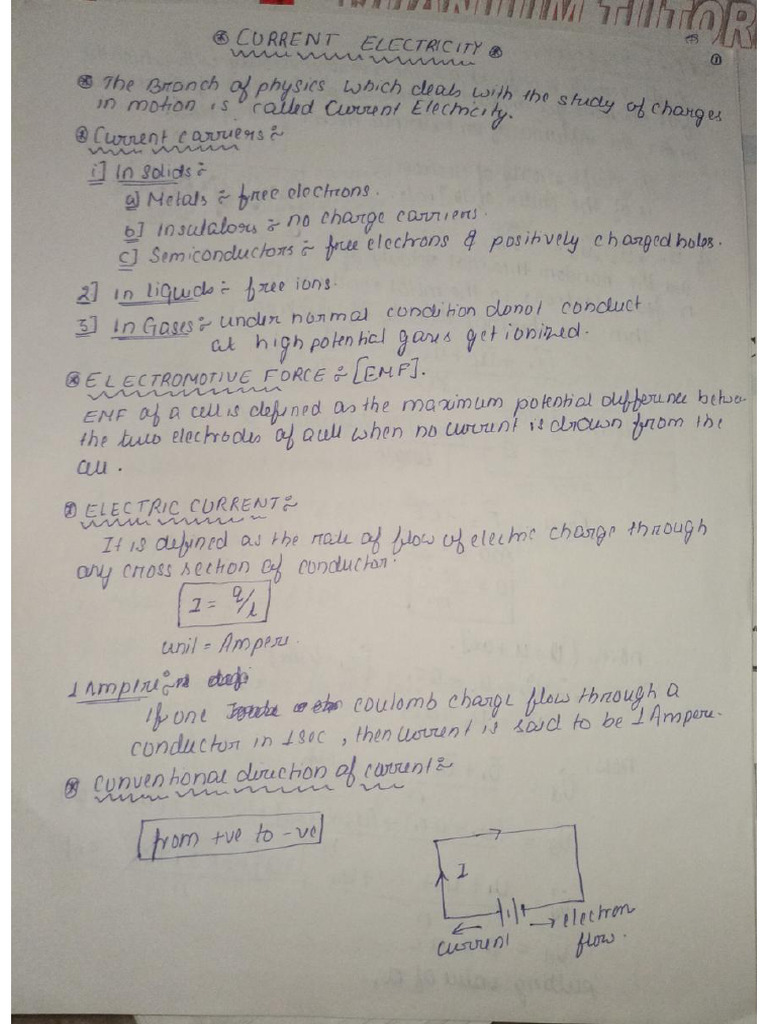 TITANIUM TUTOR
* CURRENT ELECTRICITY *
①
* The Branch of physics which deals with the study of charges
in motion is called Current Electricity.
* Current carriers :~
1] In solids :~
a] Metals :~ free electrons.
b] Insulators :~ no charge carriers.
c] Semiconductors :~ free electrons & positively charged holes.
2] In liquids :~ free ions.
3] In Gases :~ under normal condition donot conduct
at high potential gases get ionized.
* ELECTROMOTIVE FORCE :~ [EMF].
EMF of a cell is defined as the maximum potential difference betwe
the two electrodes of a cell when no current is drawn from the
cell.
* ELECTRIC CURRENT :~
It is defined as the rate of flow of electric charge through
any cross section of conductor.
I = q/t
unit = Ampere.
1 Ampere :~
If one coulomb charge flow through a
conductor in 1 sec, then current is said to be 1 Ampere.
* conventional direction of current :~
from +ve to -ve
I
current
→ electron
flow.
putting value of